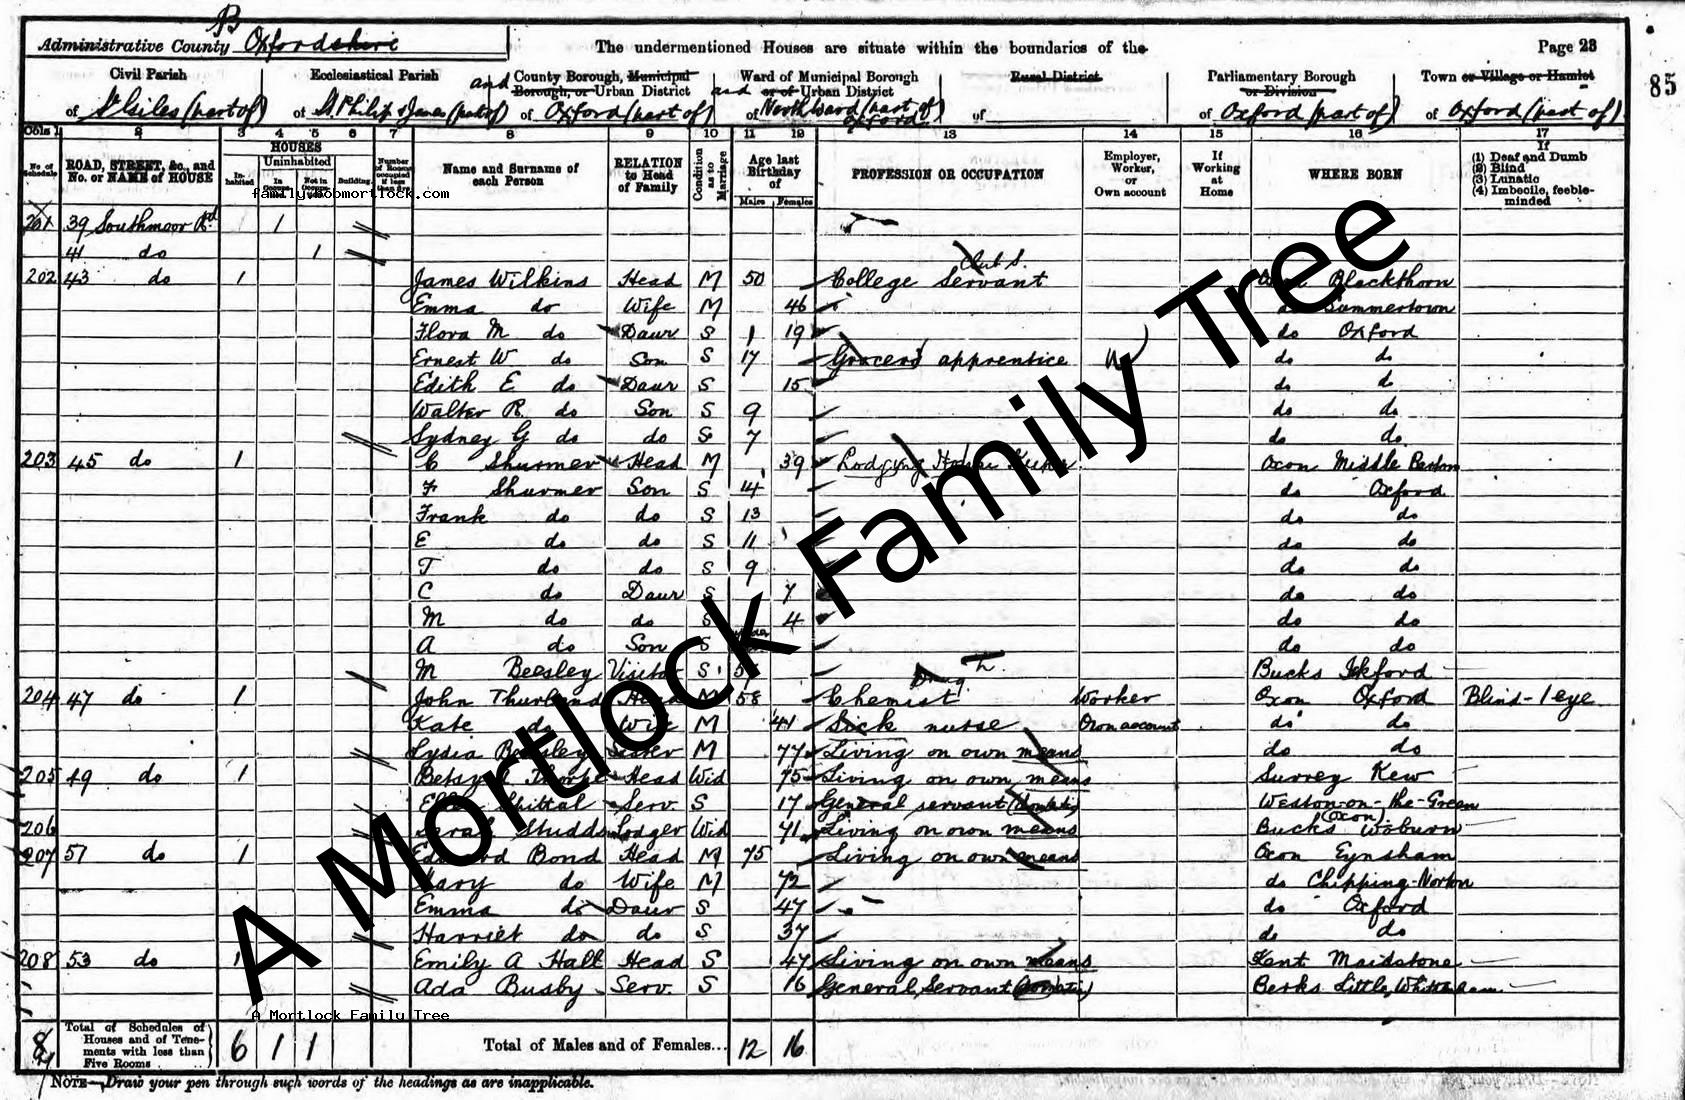 B
Administrative County Oxfordshire
The undermentioned Houses are situate within the boundaries of the
Page 23
85
Civil Parish
of St Giles (part of)
Ecclesiastical Parish
of St. Philip & James (part of)
and County Borough, Municipal
Borough, or Urban District
of Oxford (part of)
Ward of Municipal Borough
and or of Urban District
of North Ward (part of)
Oxford
Rural District
of
Parliamentary Borough
or Division
of Oxford (part of)
Town or Village or Hamlet
of Oxford (part of)
Cols 1 2 3 4 5 6 7 8 9 10 11 12 13 14 15 16 17
No. of Schedule
ROAD, STREET, &c., and No. or NAME of HOUSE
HOUSES
Inhabited
Uninhabited
In Occup.
Not in Occup.
Building
Number of Rooms occupied if less than five
Name and Surname of each Person
RELATION to Head of Family
Condition as to Marriage
Age last Birthday of
Males Females
PROFESSION OR OCCUPATION
Employer, Worker, or Own account
If Working at Home
WHERE BORN
If
(1) Deaf and Dumb
(2) Blind
(3) Lunatic
(4) Imbecile, feeble-minded
family.bobmortlock.com
201 39 Southmoor Rd 1
41 do 1
Club S.
202 43 do 1 James Wilkins Head M 50 College Servant Oxon Blackthorn
Emma do Wife M 46 do Summertown
Flora M do Daur S 19 do Oxford
Ernest W do Son S 17 Grocers apprentice W do do
Edith E do Daur S 15 do do
Walter R. do Son S 9 do do
Sydney G do do S 7 do do.
203 45 do 1 C Shurmer Head M 39 Lodging House Keeper Oxon Middle Barton
F Shurmer Son S 14 do Oxford
Frank do do S 13 do do
E do do S 11 do do
T do do S 9 do do
C do Daur S 7 do do
M do do S 4 do do
A do Son S do do
M Beesley Visitor S Bucks Ickford
Drug.
204 47 do 1 John Thurland Head M 58 Chemist Worker Oxon Oxford Blind-1 eye
Kate do Wife M 41 Sick nurse Own account do do
Lydia Beesley M 77 Living on own means do do
205 49 do 1 Betsy Thorpe Head Wid 75 Living on own means Surrey Kew
Spittal Serv. S 17 General servant (domestic) Weston-on-the-Green
(Oxon)
206 Sarah Studds Lodger Wid 71 Living on own means Bucks Woburn
207 51 do 1 Edward Bond Head M 75 Living on own means Oxon Eynsham
Mary do Wife M 72 do Chipping-Norton
Emma do Daur S 47 do Oxford
Harriet do do S 37 do do
208 53 do 1 Emily A Hall Head S 47 Living on own means Kent Maidstone
Ada Busby Serv. S 16 General Servant (Domestic) Berks Little Whittenham
A Mortlock Family Tree
A Mortlock Family Tree
8 Total of Schedules of Houses and of Tenements with less than Five Rooms 6 1 1 Total of Males and of Females... 12 16
NOTE—Draw your pen through such words of the headings as are inapplicable.